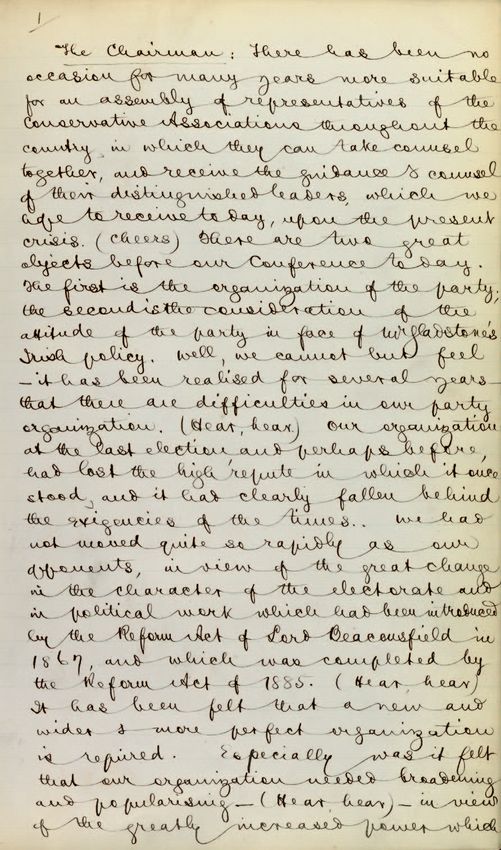 1
The Chairman: There has been no
occasion for many years more suitable
for an assembly of representatives of the
Conservative Associations throughout the
country, in which they can take counsel
together, and receive the guidance & counsel
of their distinguished leaders, which we
hope to receive to day, upon the present
crisis. (Cheers) There are two great
objects before our Conference to day.
The first is the organization of the party,
the second is the consideration of the
attitude of the party in face of Mr Gladstone's
Irish policy. Well, we cannot but feel
- it has been realised for several years
that there are difficulties in our party
organization. (Hear, hear.) Our organization
at the last election and perhaps before,
had lost the high repute in which it once
stood, and it had clearly fallen behind
the exigencies of the times.. We had
not moved quite so rapidly as our
opponents, in view of the great change
in the character of the electorate and
in political work which had been introduced
by the Reform Act of Lord Beaconsfield in
1867, and which was completed by
the Reform Act of 1885. (Hear, hear)
It has been felt that a new and
wider & more perfect organization
is required. Especially was it felt
that our organization needed broadening
and popularising - (Hear, hear) - in view
of the greatly increased power which